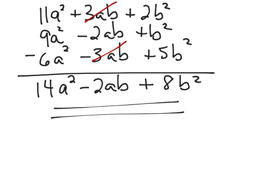 11a² + 3ab + 2b²
9a² - 2ab + b²
- 6a² - 3ab + 5b²
14a² - 2ab + 8b²